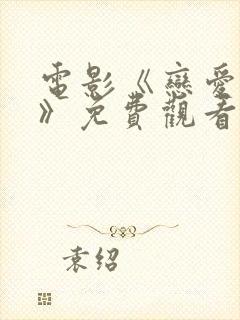 電影《戀愛
》免費觀看
袁绍